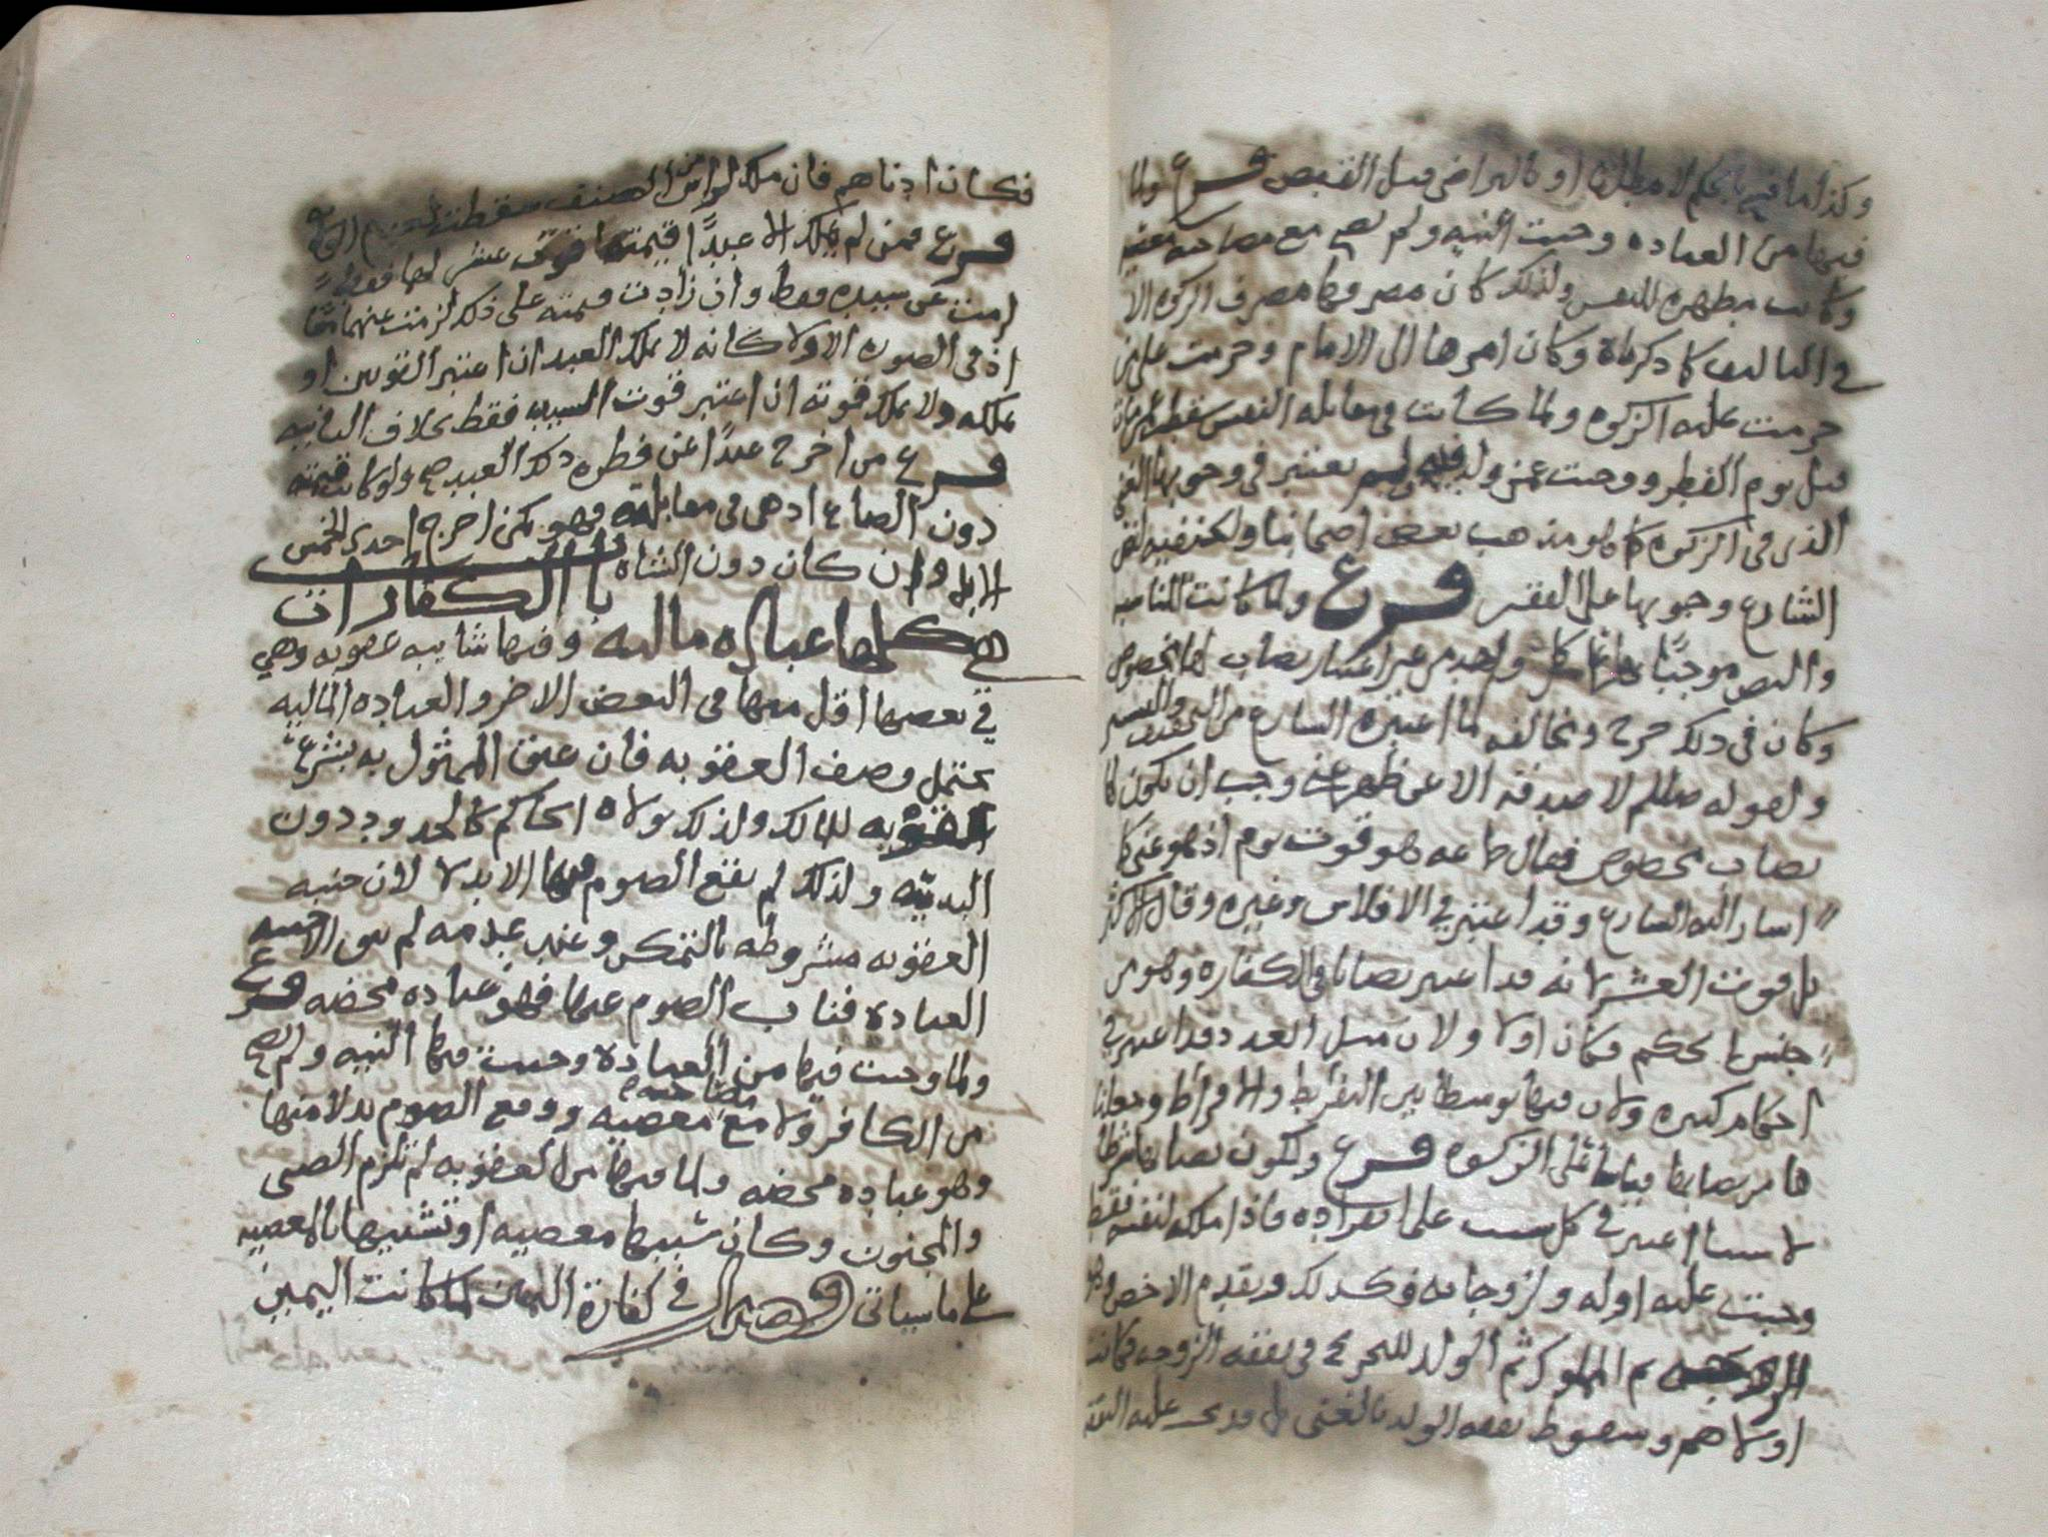 وكذا ما فيها بحكم لا مطلقا او بالتراضي قبل القبض فرع ولما
فيها من العباده وجبت النيه ولم تصح مع مصاحبه معصيه
وكانت مطهره للنفس ولذلك كان مصرفها مصرف الزكوه الا
في التاليف كما ذكرناه وكان امرها الى الامام وحرمت على من
حرمت عليه الزكوه ولما كانت في مقابله النفس سقطت
قبل يوم الفطر ووجبت عمن ولد فيه ولم يعتبر في وجوبها الغنى
الذي في الزكوه كما هو مذهب بعض اصحابنا ولكنفيه لنص
الشارع وجوبها على الفقير فرع ولما كانت المناسبه
والنص موجبًا على كل واحد من غير اعتبار نصاب لها مخصوص
وكان في ذلك حرج ومخالفه لما اعتبره الشارع من التخفيف والتيسير
ولقوله صللم لا صدقه الا عن ظهر غنى وجب ان يكون لها
نصاب مخصوص فقال جماعه هو قوت يوم اذ هو غنى كما
اشار اليه الشارع وقد اعتبر في الافلاس وغيره وقال الاكثر
بل قوت العشر لانه قد اعتبر نصابا في الكفاره وهو من
جنس ما نحكم فكان اولا ولان مثل العدد قد اعتبر في
احكام كثيره ولان فيها توسطا بين التفريط والافراط وجعلنا
ها من نصابها قياسا على الزكوه فرع ولكون نصابها شرطا
لا سببا اعتبر في كل سبب على انفراده فاذا ملكه لنفسه فقط
وجبت عليه اوله ولزوجاته فكذلك ويقدم الاخص وهو
ثم المملوك ثم الولد للحرج في نفقه الزوجه فكانت
اولاهم وسقوط نفقه الولد بالغنى بل قد تجب عليه النفقه
فكان ادناهم فان ملك لواحد من الصنف سقطت
فرع فمن لم يملك الا عبدًا قيمته قوت عشر لهما فقط
لزمت عن سيده فقط وان زادت قيمته على ذلك لزمت عنهما معًا
اذ في الصوره الاولا كانه لا يملك العبد ان اعتبر القوتين او
يملكه ولا يملك قوته ان اعتبر قوت السيد فقط بخلاف الثانيه
فرع من اخرج عبدًا عن فطره ذلك العبد صح ولو كانت قيمته
دون الصاع اذ هي في مقابلته فهو كمن اخرج احدى الخمس
الابل وان كان دون الشاه باب الكفارات
هي كلها عباره ماليه وفيها شايبه عقوبه وهي
في بعضها اقل منها في البعض الاخر والعباده الماليه
تحتمل وصف العقوبه فان عتق الممثول به بشرع
العقوبه للمالك ولذلك تولاه الحاكم كالحدود دون
البدنيه ولذلك لم يقع الصوم فيها الا بدلا لان جنبه
العقوبه مشروطه بالتمكن وعند عدمه لم يبق الا جنبه
العباده فناب الصوم عنها فهو عباده محضه فرع
ولما وجبت فيها من العباده وجبت فيها النيه ولم تصح
من الكافر ولا مع مصاحبه معصيه ووقع الصوم بدلا منها
وهو عباده محضه ولما فيها من العقوبه لم تلزم الصبي
والمجنون وكان سببها معصيه او تشبيها بالمعصيه
على ما سياتي فصل في كفارة اليمين لما كانت اليمين